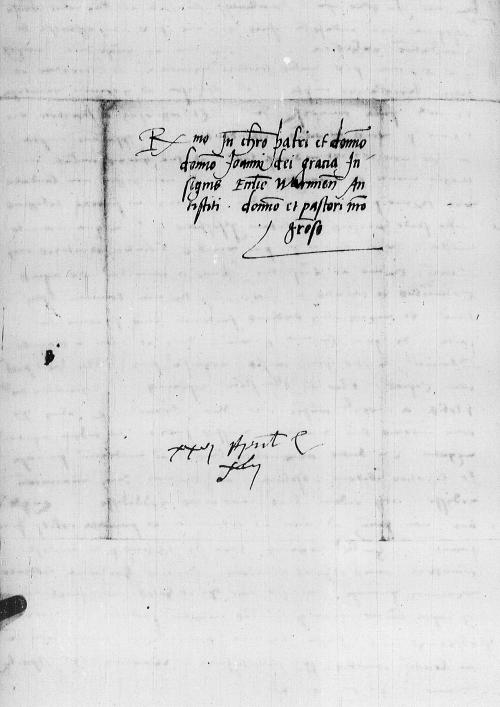 Rmo In chro patri et domno
domno Joanni dei gracia In-
signis Eccle Warmien An
tistiti . domno et pastori mo
groso
xxvj April
xlvj